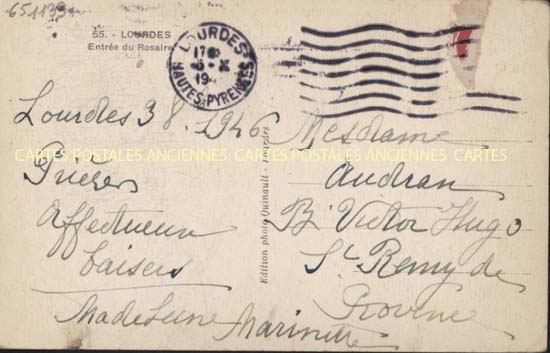 651133
55. - LOURDES
Entrée du Rosaire
LOURDES
17
HAUTES-PYRENEES
Lourdes 3 8. 1946
Prières
Affectueux
baisers
Madeleine Marinette
Edition photo Quinault - Lourdes
Mesdame
Audran
B. Victor Hugo
St Remy de
Provence
CARTES POSTALES ANCIENNES CARTES POSTALES ANCIENNES CARTES